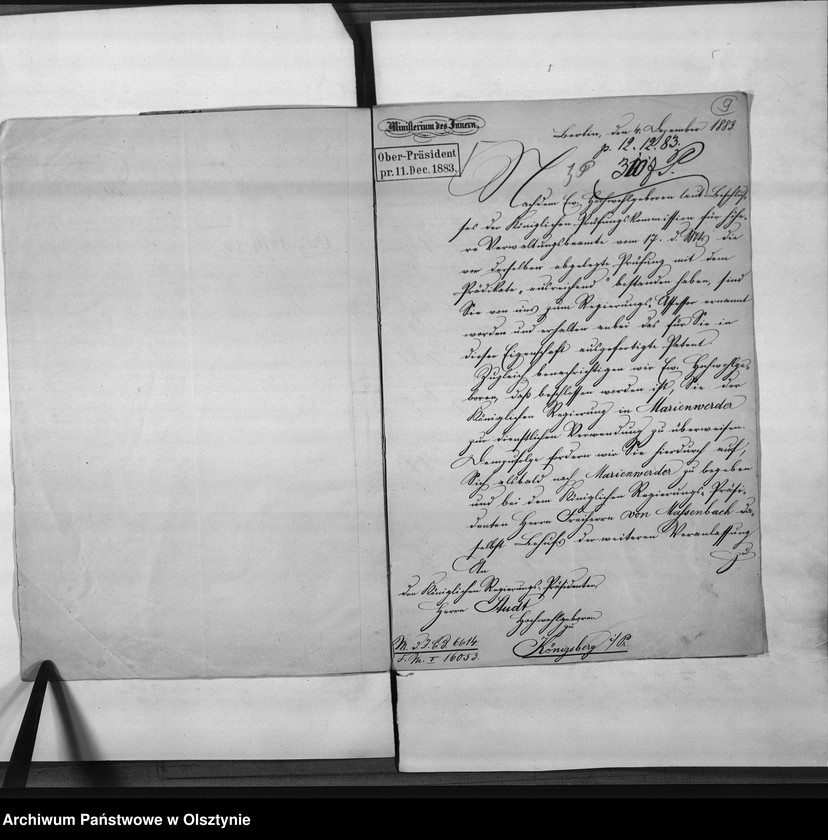 9
Ministerium des Innern.
Berlin, den 4. Dezember 1883.
p. 12.12.83.
Ober-Präsident
pr. 11. Dec. 1883.
Nachdem Ew. Hochwohlgeboren laut Beschlus-
ses der Königlichen Prüfungskommission für höhe-
re Verwaltungsbeamte vom 17. d. Mts. die
vor derselben abgelegte Prüfung mit dem
Prädikate „ausreichend" bestanden haben, sind
Sie von uns zum Regierungs-Assessor ernannt
worden und erhalten anbei das für Sie in
dieser Eigenschaft ausgefertigte Patent.
Zugleich benachrichtigen wir Ew. Hochwohlge-
boren, daß beschlossen worden ist, Sie der
Königlichen Regierung in Marienwerder
zur dienstlichen Verwendung zu überweisen.
Demzufolge fordern wir Sie hierdurch auf,
Sich alsbald nach Marienwerder zu begeben
und bei dem Königlichen Regierungs-Präsi-
denten Herrn Freiherrn von Massenbach da-
selbst Behufs der weiteren Veranlassung
zu
An
den Königlichen Regierungs-Präsidenten
Herrn Studt
Hochwohlgeboren
zu
Königsberg i/Pr.
M. d. J. 6614.
F. M. I 16053.
Archiwum Państwowe w Olsztynie